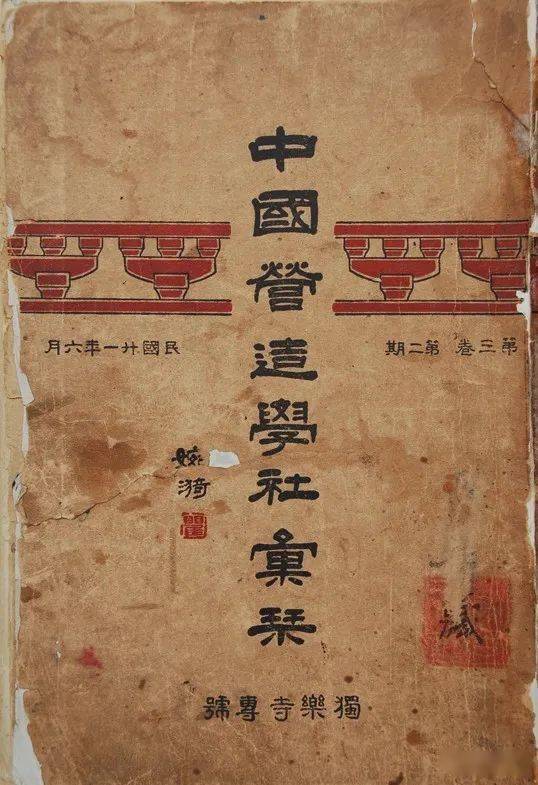 第三卷 第二期
民國廿一年六月
中國營造學社彙栞
獨樂寺專號
藏